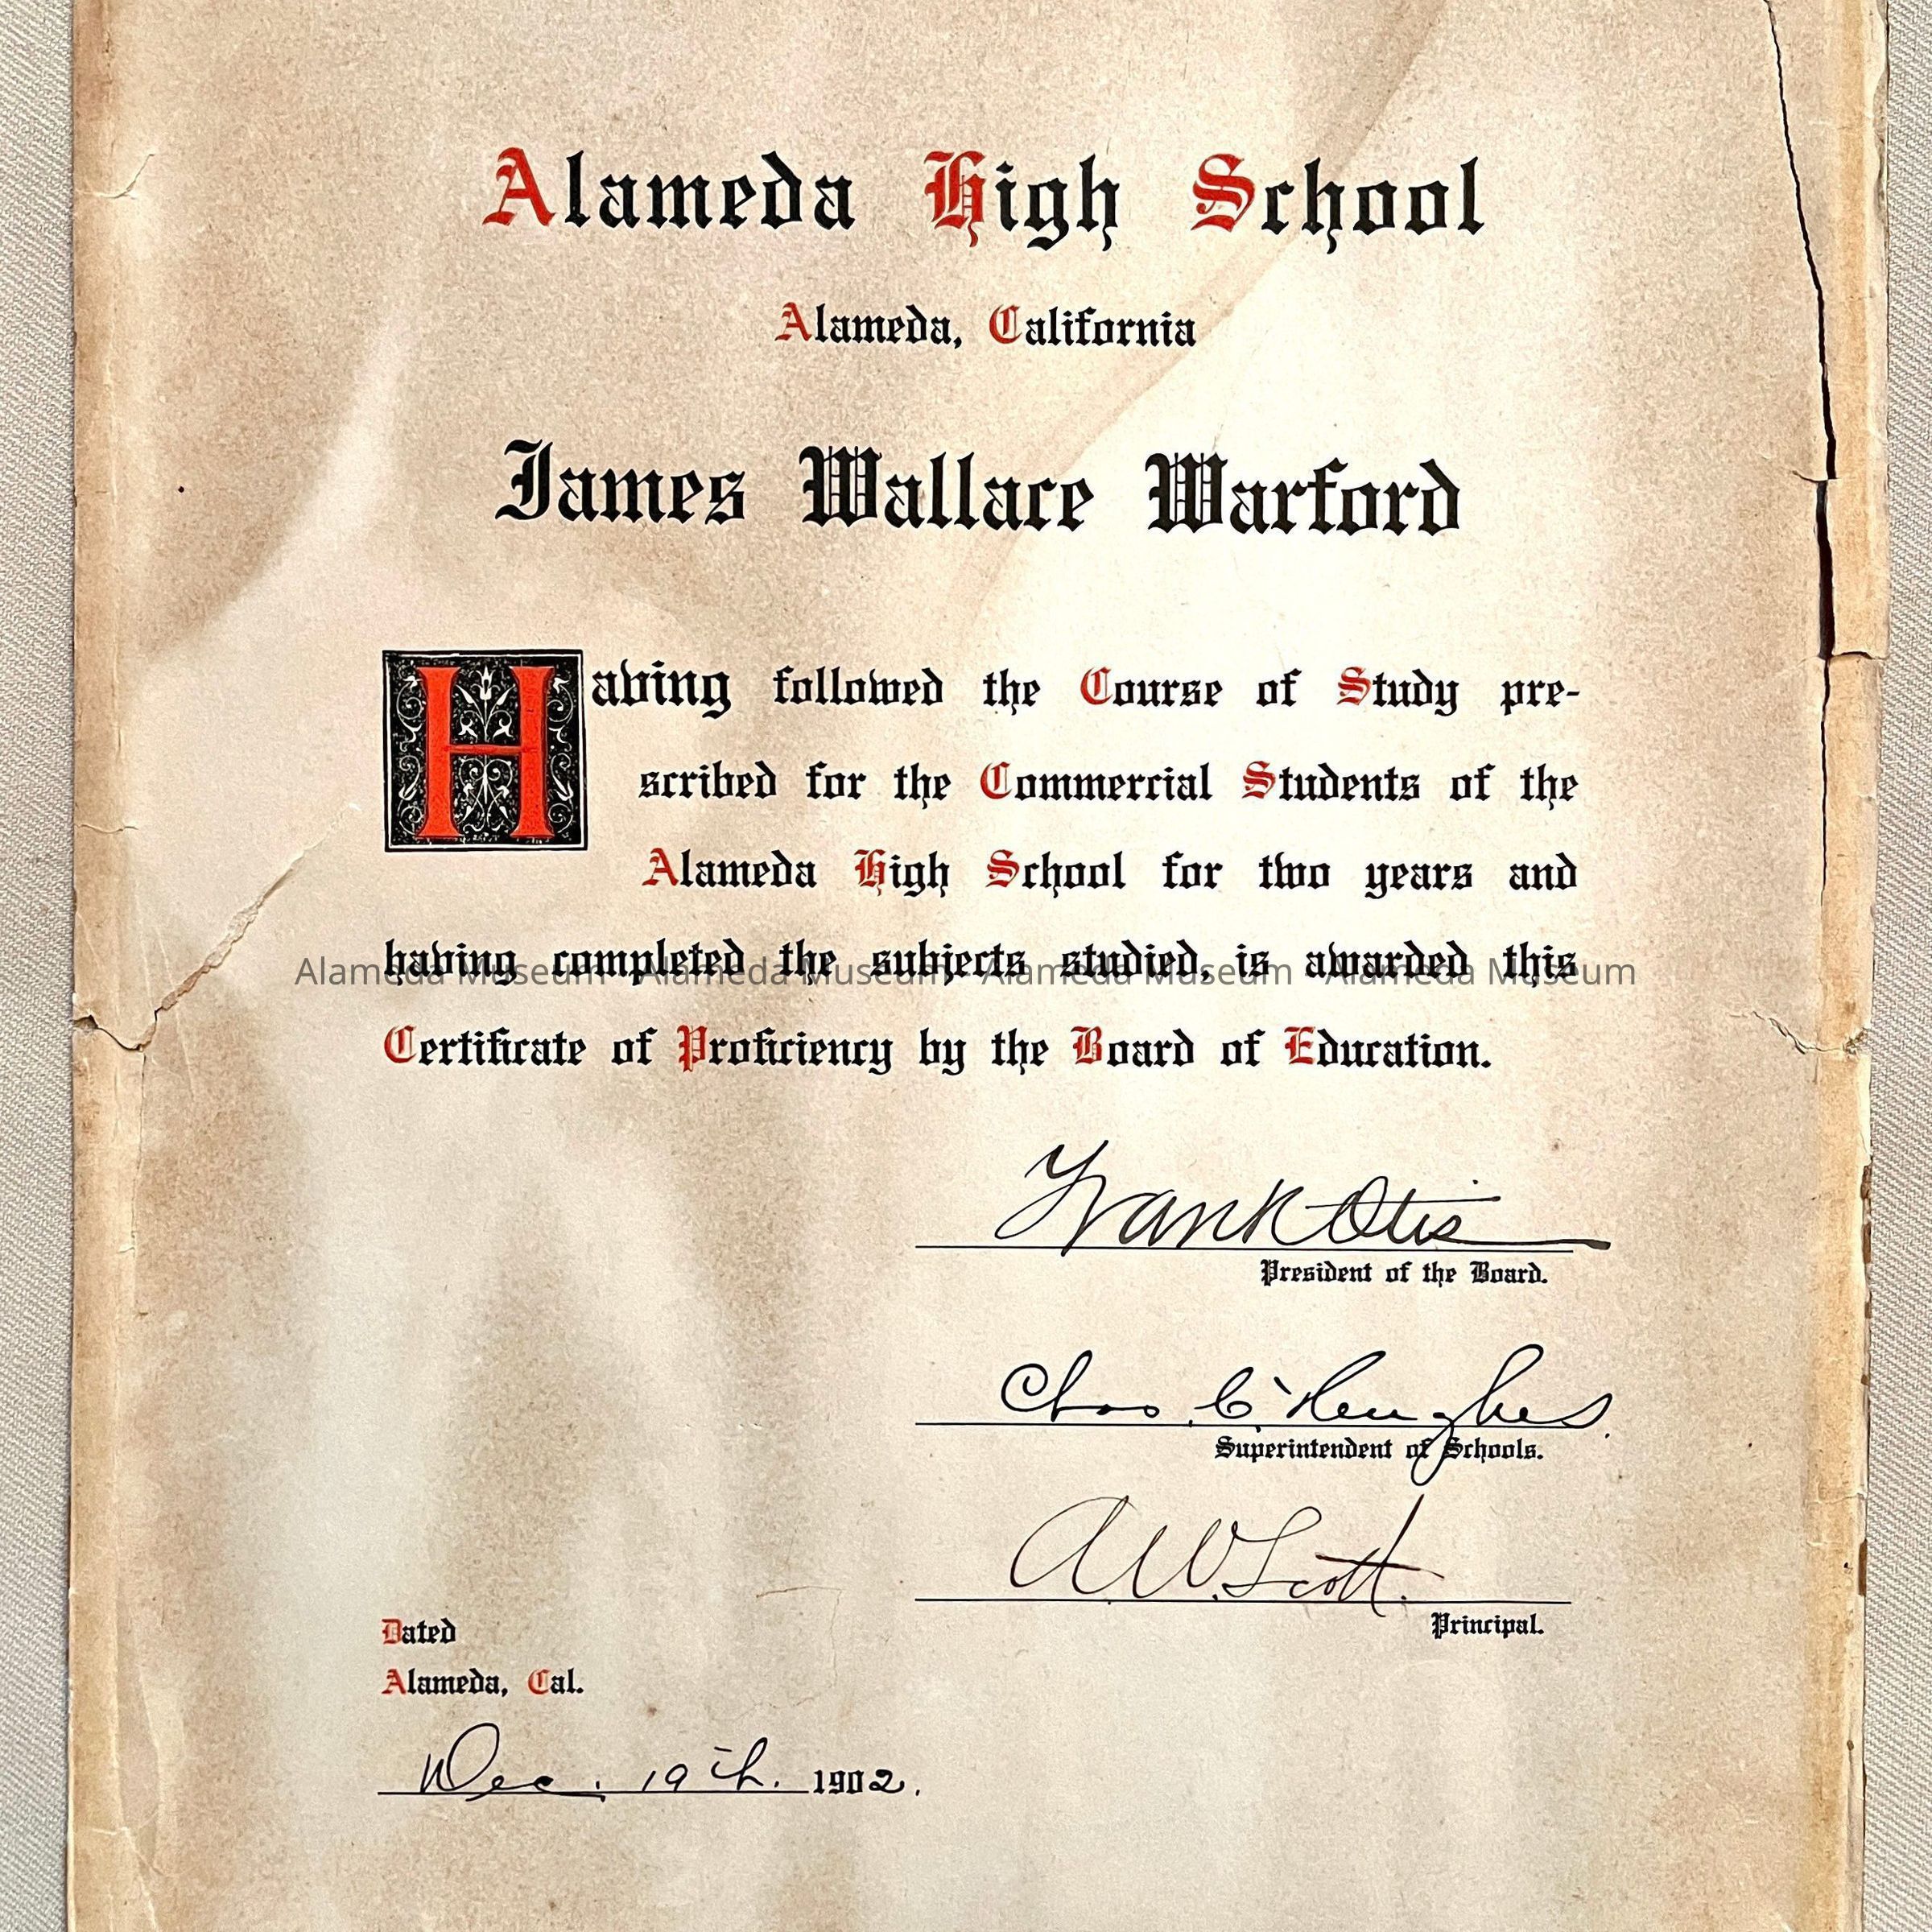 Alameda High School
Alameda, California
James Wallace Warford
Having followed the Course of Study pre-
scribed for the Commercial Students of the
Alameda High School for two years and
having completed the subjects studied, is awarded this
Alameda Museum - Alameda Museum - Alameda Museum - Alameda Museum
Certificate of Proficiency by the Board of Education.
Frank Otis
President of the Board.
Chas. C. Hughes.
Superintendent of Schools.
A.W. Scott.
Principal.
Dated
Alameda, Cal.
Dec. 19th. 1902.